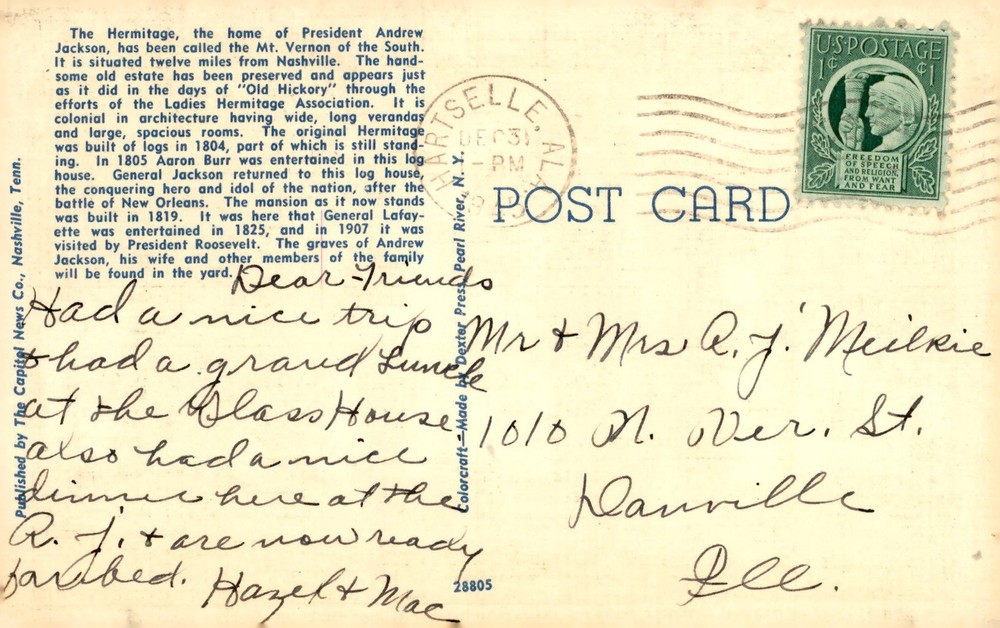 The Hermitage, the home of President Andrew
Jackson, has been called the Mt. Vernon of the South.
It is situated twelve miles from Nashville. The hand-
some old estate has been preserved and appears just
as it did in the days of "Old Hickory" through the
efforts of the Ladies Hermitage Association. It is
colonial in architecture having wide, long verandas
and large, spacious rooms. The original Hermitage
was built of logs in 1804, part of which is still stand-
ing. In 1805 Aaron Burr was entertained in this log
house. General Jackson returned to this log house,
the conquering hero and idol of the nation, after the
battle of New Orleans. The mansion as it now stands
was built in 1819. It was here that General Lafay-
ette was entertained in 1825, and in 1907 it was
visited by President Roosevelt. The graves of Andrew
Jackson, his wife and other members of the family
will be found in the yard.
Published by The Capitol News Co., Nashville, Tenn.
Dear Friends
Had a nice trip
& had a grand Lunch
at the Glass House
also had a nice
dinner here at the
R. J. & are now ready
for bed. Hazel & Mac
Colorcraft—Made by Dexter Press, Pearl River, N. Y.
28805
HARTSELLE, ALA.
DEC 31
-PM
POST CARD
U.S. POSTAGE
1¢ ¢1
FREEDOM
OF SPEECH
AND RELIGION,
FROM WANT
AND FEAR
Mr & Mrs R. J. Meilkie
1010 N. Ver. St.
Danville
Ill.